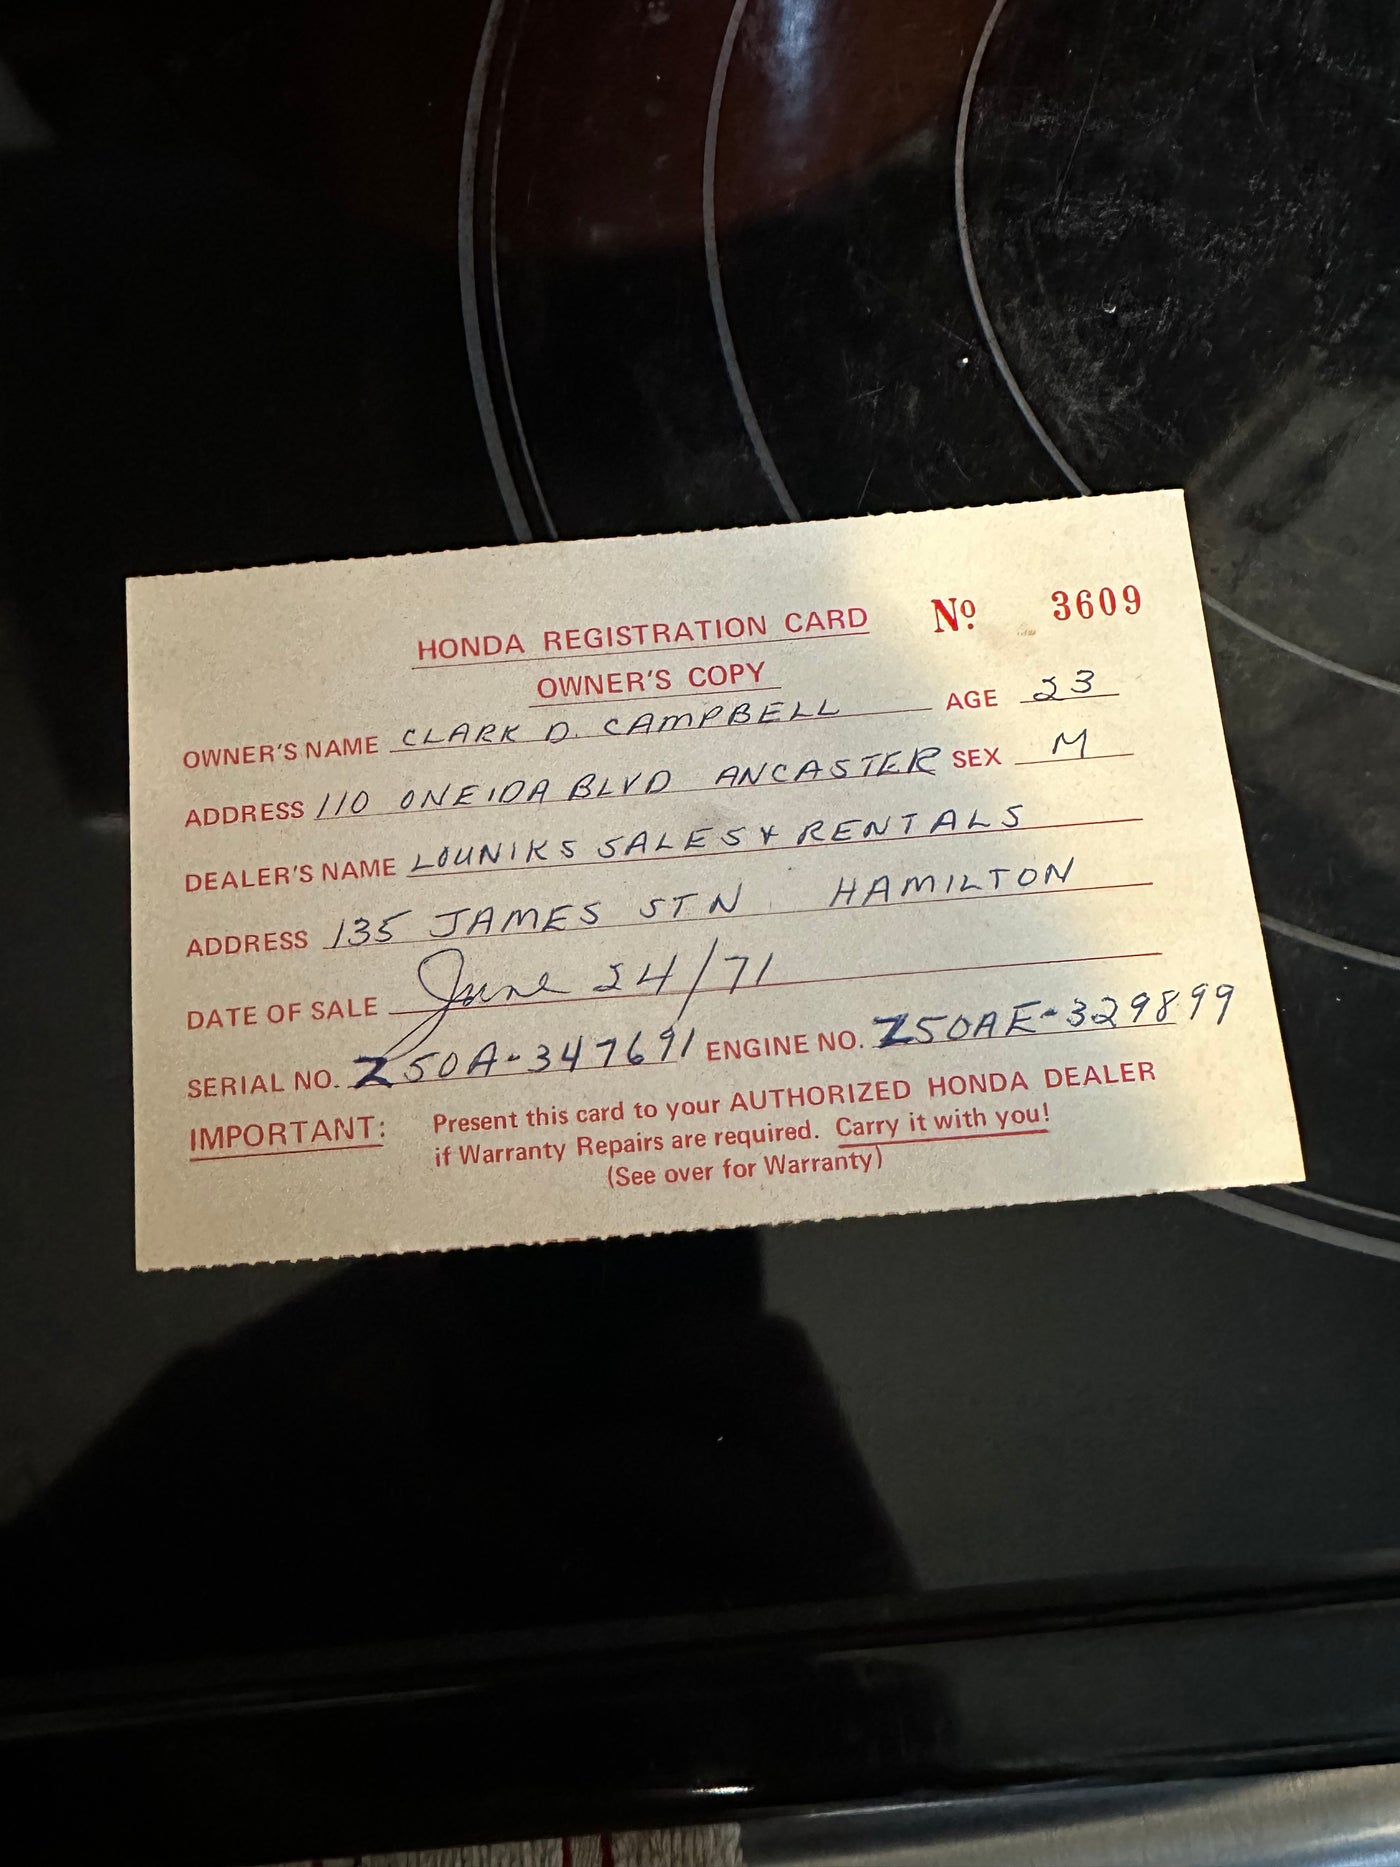 HONDA REGISTRATION CARD Nº 3609
OWNER'S COPY
OWNER'S NAME CLARK D. CAMPBELL AGE 23
ADDRESS 110 ONEIDA BLVD ANCASTER SEX M
DEALER'S NAME LOUNIKS SALES & RENTALS
ADDRESS 135 JAMES ST N HAMILTON
DATE OF SALE June 24/71
SERIAL NO. Z50A-347691 ENGINE NO. Z50AE-329899
IMPORTANT: Present this card to your AUTHORIZED HONDA DEALER
if Warranty Repairs are required. Carry it with you!
(See over for Warranty)